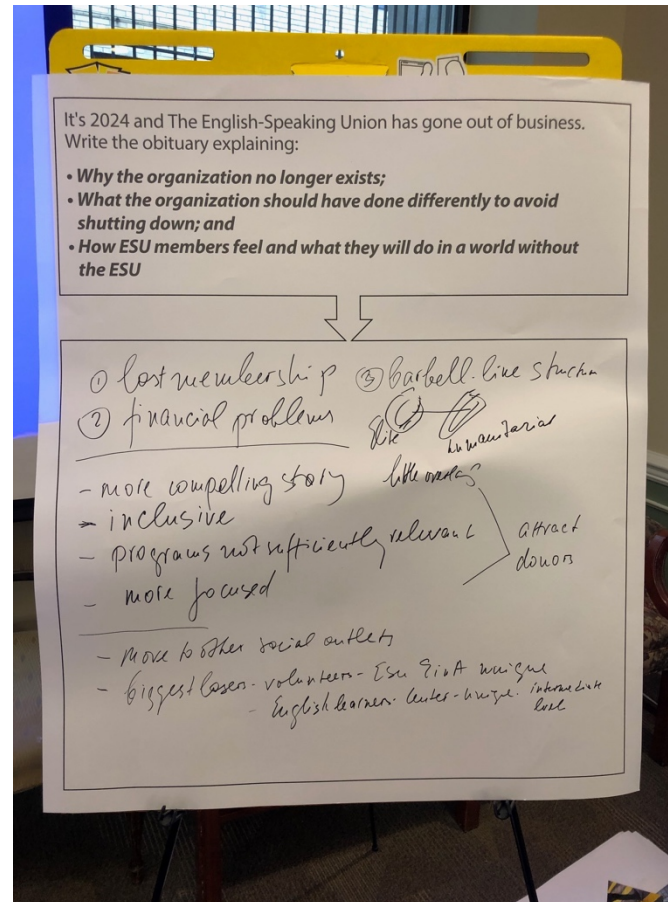 It's 2024 and The English-Speaking Union has gone out of business.
Write the obituary explaining:
• Why the organization no longer exists;
• What the organization should have done differently to avoid
shutting down; and
• How ESU members feel and what they will do in a world without
the ESU
① lost membership
② financial problems
③ barbell-like
Elite
humanitarian
little overlap
- more compelling story
- inclusive
- programs not sufficiently relevant
- more focused
attract
donors
- move to other social outlets
- biggest losers - volunteers - ESU unique
- English learners - Center - unique - intermediate
level